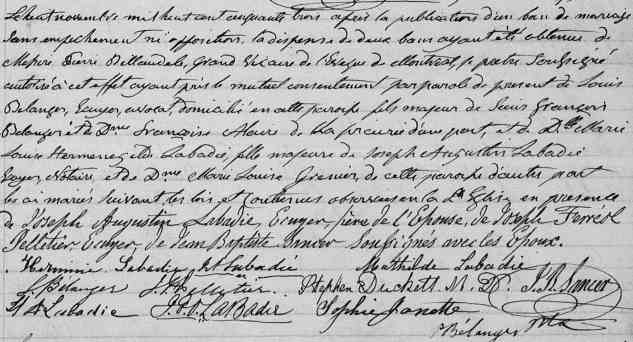 Le huit novembre mil huit cent cinquante trois après la publication d'un ban de mariage
sans empêchement ni opposition, la dispense de deux bans ayant été obtenue de
Messire Pierre Billaudele, Grand Vicaire de l'Evêque de Montréal, je prêtre soussigné
autorisé à cet effet ayant pris le mutuel consentement par parole de présent de Louis
Belanger, Ecuyer, avocat, domicilié en cette paroisse fils majeur de Louis François
Belanger et de Dme Françoise d'une part, et de Dlle Marie
Louise Hermine Labadie, fille majeure de Joseph Augustin Labadie
Ecuyer, Notaire, et de Dme Marie Louise Grenier, de cette paroisse d'autre part
les ai mariés suivant les lois et coutumes observées en la Ste Eglise en présence
de Joseph Augustin Labadie Ecuyer, père de l'Epouse, de Joseph Ferreol
Pelletier Ecuyer, de Jean Baptiste soussignés avec les Epoux.
Hermine Labadie Labadie Mathilde Labadie
L. Bélanger Pelletier Stephen Duckett M. D. J. B.
Labadie Labadie Sophie
Bélanger